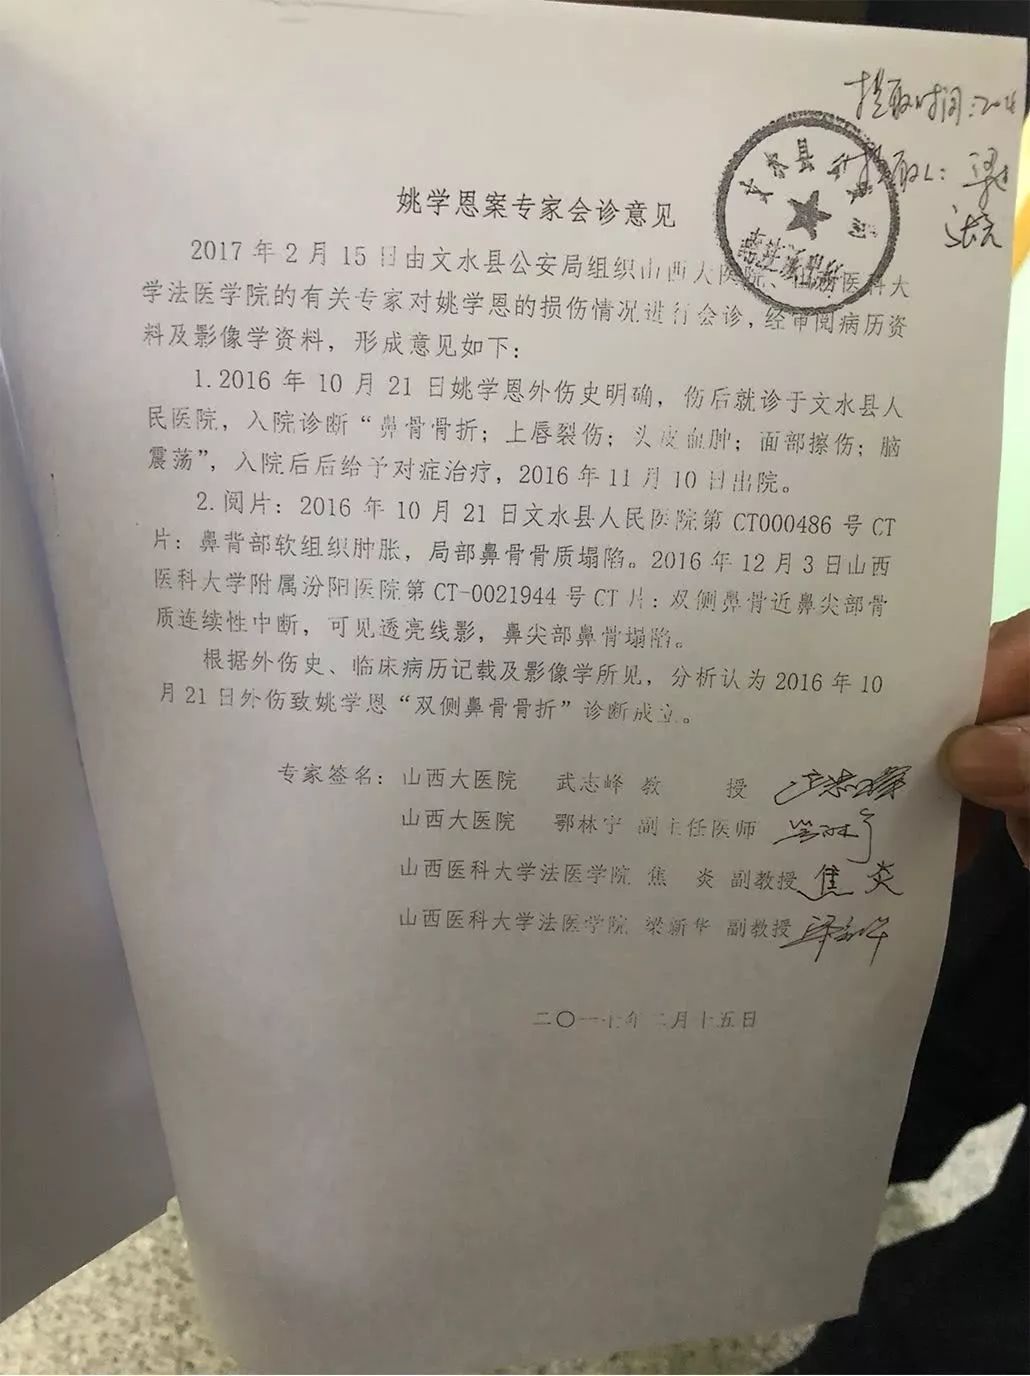 提取时间:
提取人:
文水县
姚学恩案专家会诊意见
2017年2月15日由文水县公安局组织山西大医院、山西医科大
学法医学院的有关专家对姚学恩的损伤情况进行会诊，经审阅病历资
料及影像学资料，形成意见如下：
1.2016年10月21日姚学恩外伤史明确，伤后就诊于文水县人
民医院，入院诊断“鼻骨骨折；上唇裂伤；头皮血肿；面部擦伤；脑
震荡”，入院后后给予对症治疗，2016年11月10日出院。
2.阅片：2016年10月21日文水县人民医院第CT000486号CT
片：鼻背部软组织肿胀，局部鼻骨骨质塌陷。2016年12月3日山西
医科大学附属汾阳医院第CT-0021944号CT片：双侧鼻骨近鼻尖部骨
质连续性中断，可见透亮线影，鼻尖部鼻骨塌陷。
根据外伤史、临床病历记载及影像学所见，分析认为2016年10
月21日外伤致姚学恩“双侧鼻骨骨折”诊断成立。
专家签名：山西大医院 武志峰 教 授
山西大医院 鄂林宁 副主任医师
山西医科大学法医学院 焦 炎 副教授 焦炎
山西医科大学法医学院 梁新华 副教授 梁新华
二〇一七年二月十五日